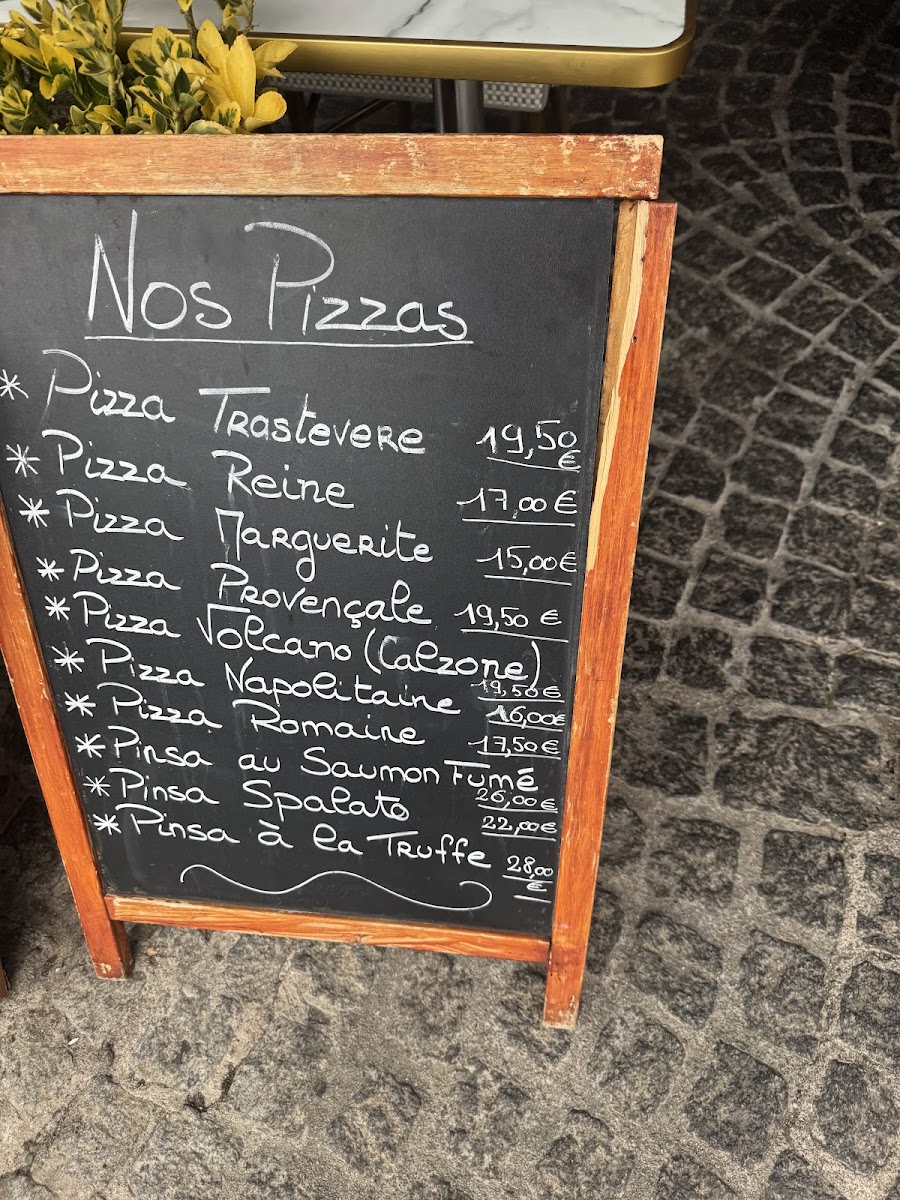 Nos Pizzas
* Pizza Trastevere 19,50 €
* Pizza Reine 17,00 €
* Pizza Marguerite 15,00 €
* Pizza Provençale 19,50 €
* Pizza Volcano (Calzone) 19,50 €
* Pizza Napolitaine 16,00 €
* Pizza Romaine 17,50 €
* Pinsa au Saumon Fumé 26,00 €
* Pinsa Spalato 22,00 €
* Pinsa à la Truffe 28,00 €